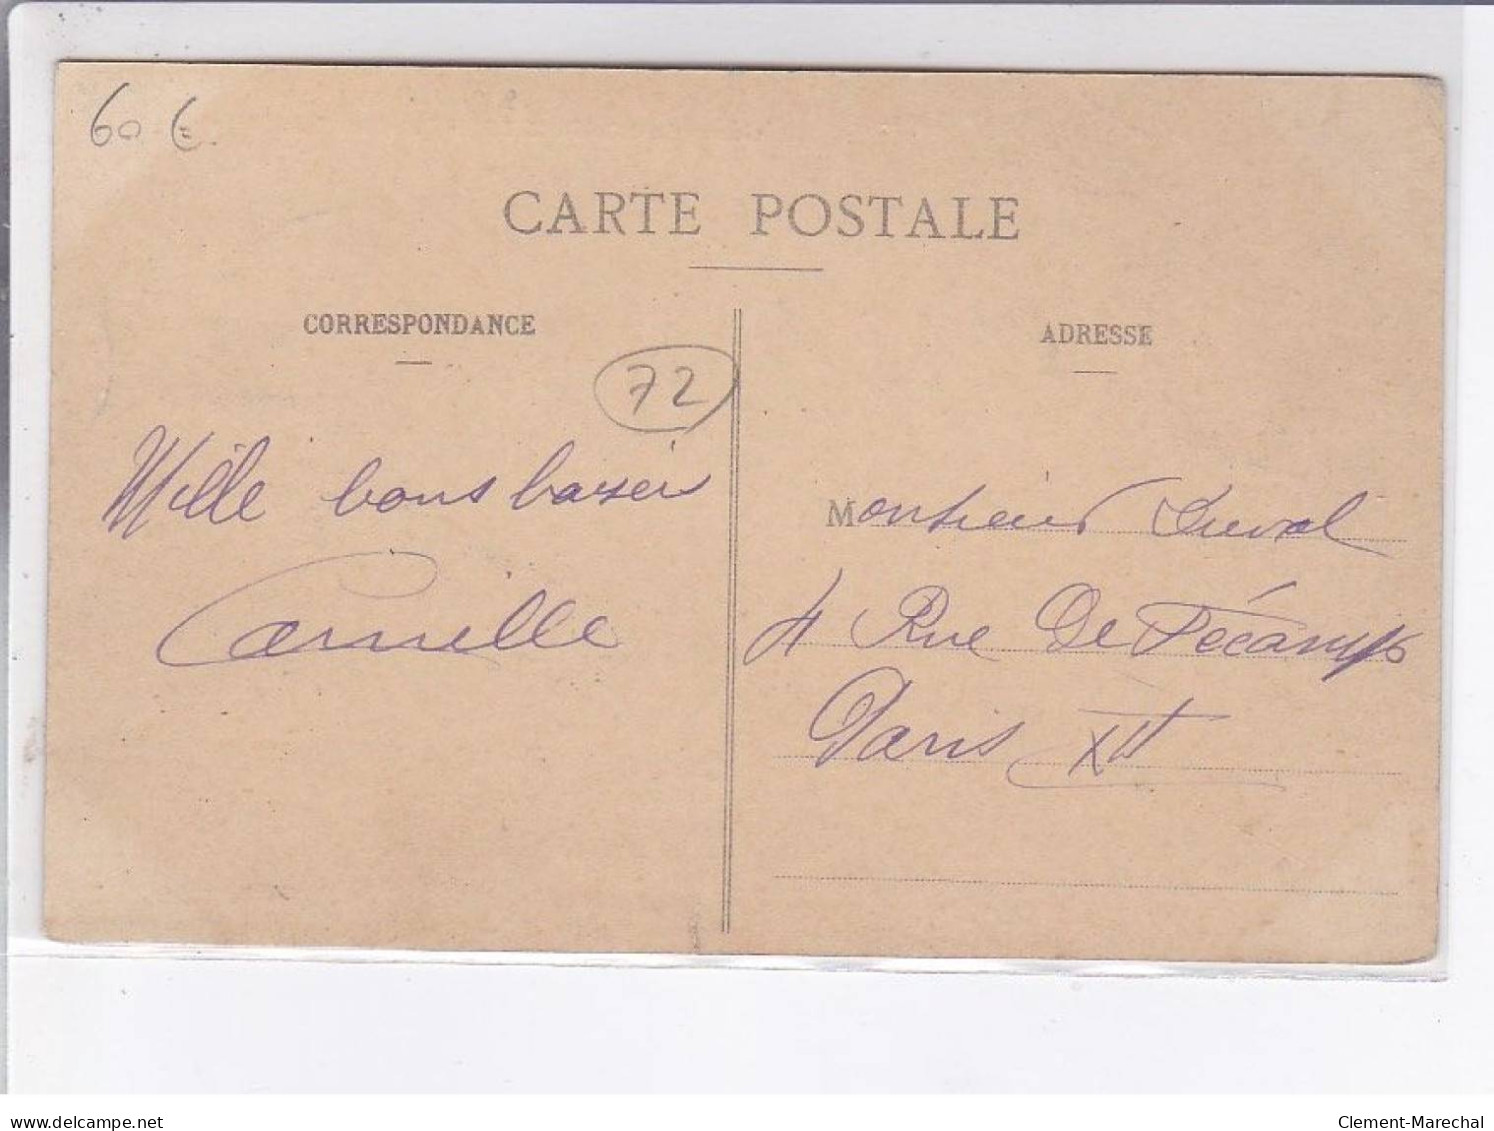 60 €
CARTE POSTALE
CORRESPONDANCE
72
Mille bons baisers
Camille
ADRESSE
Monsieur Duval
4 Rue De Fécamp
Paris XII
delcampe.net
Clement-Marechal